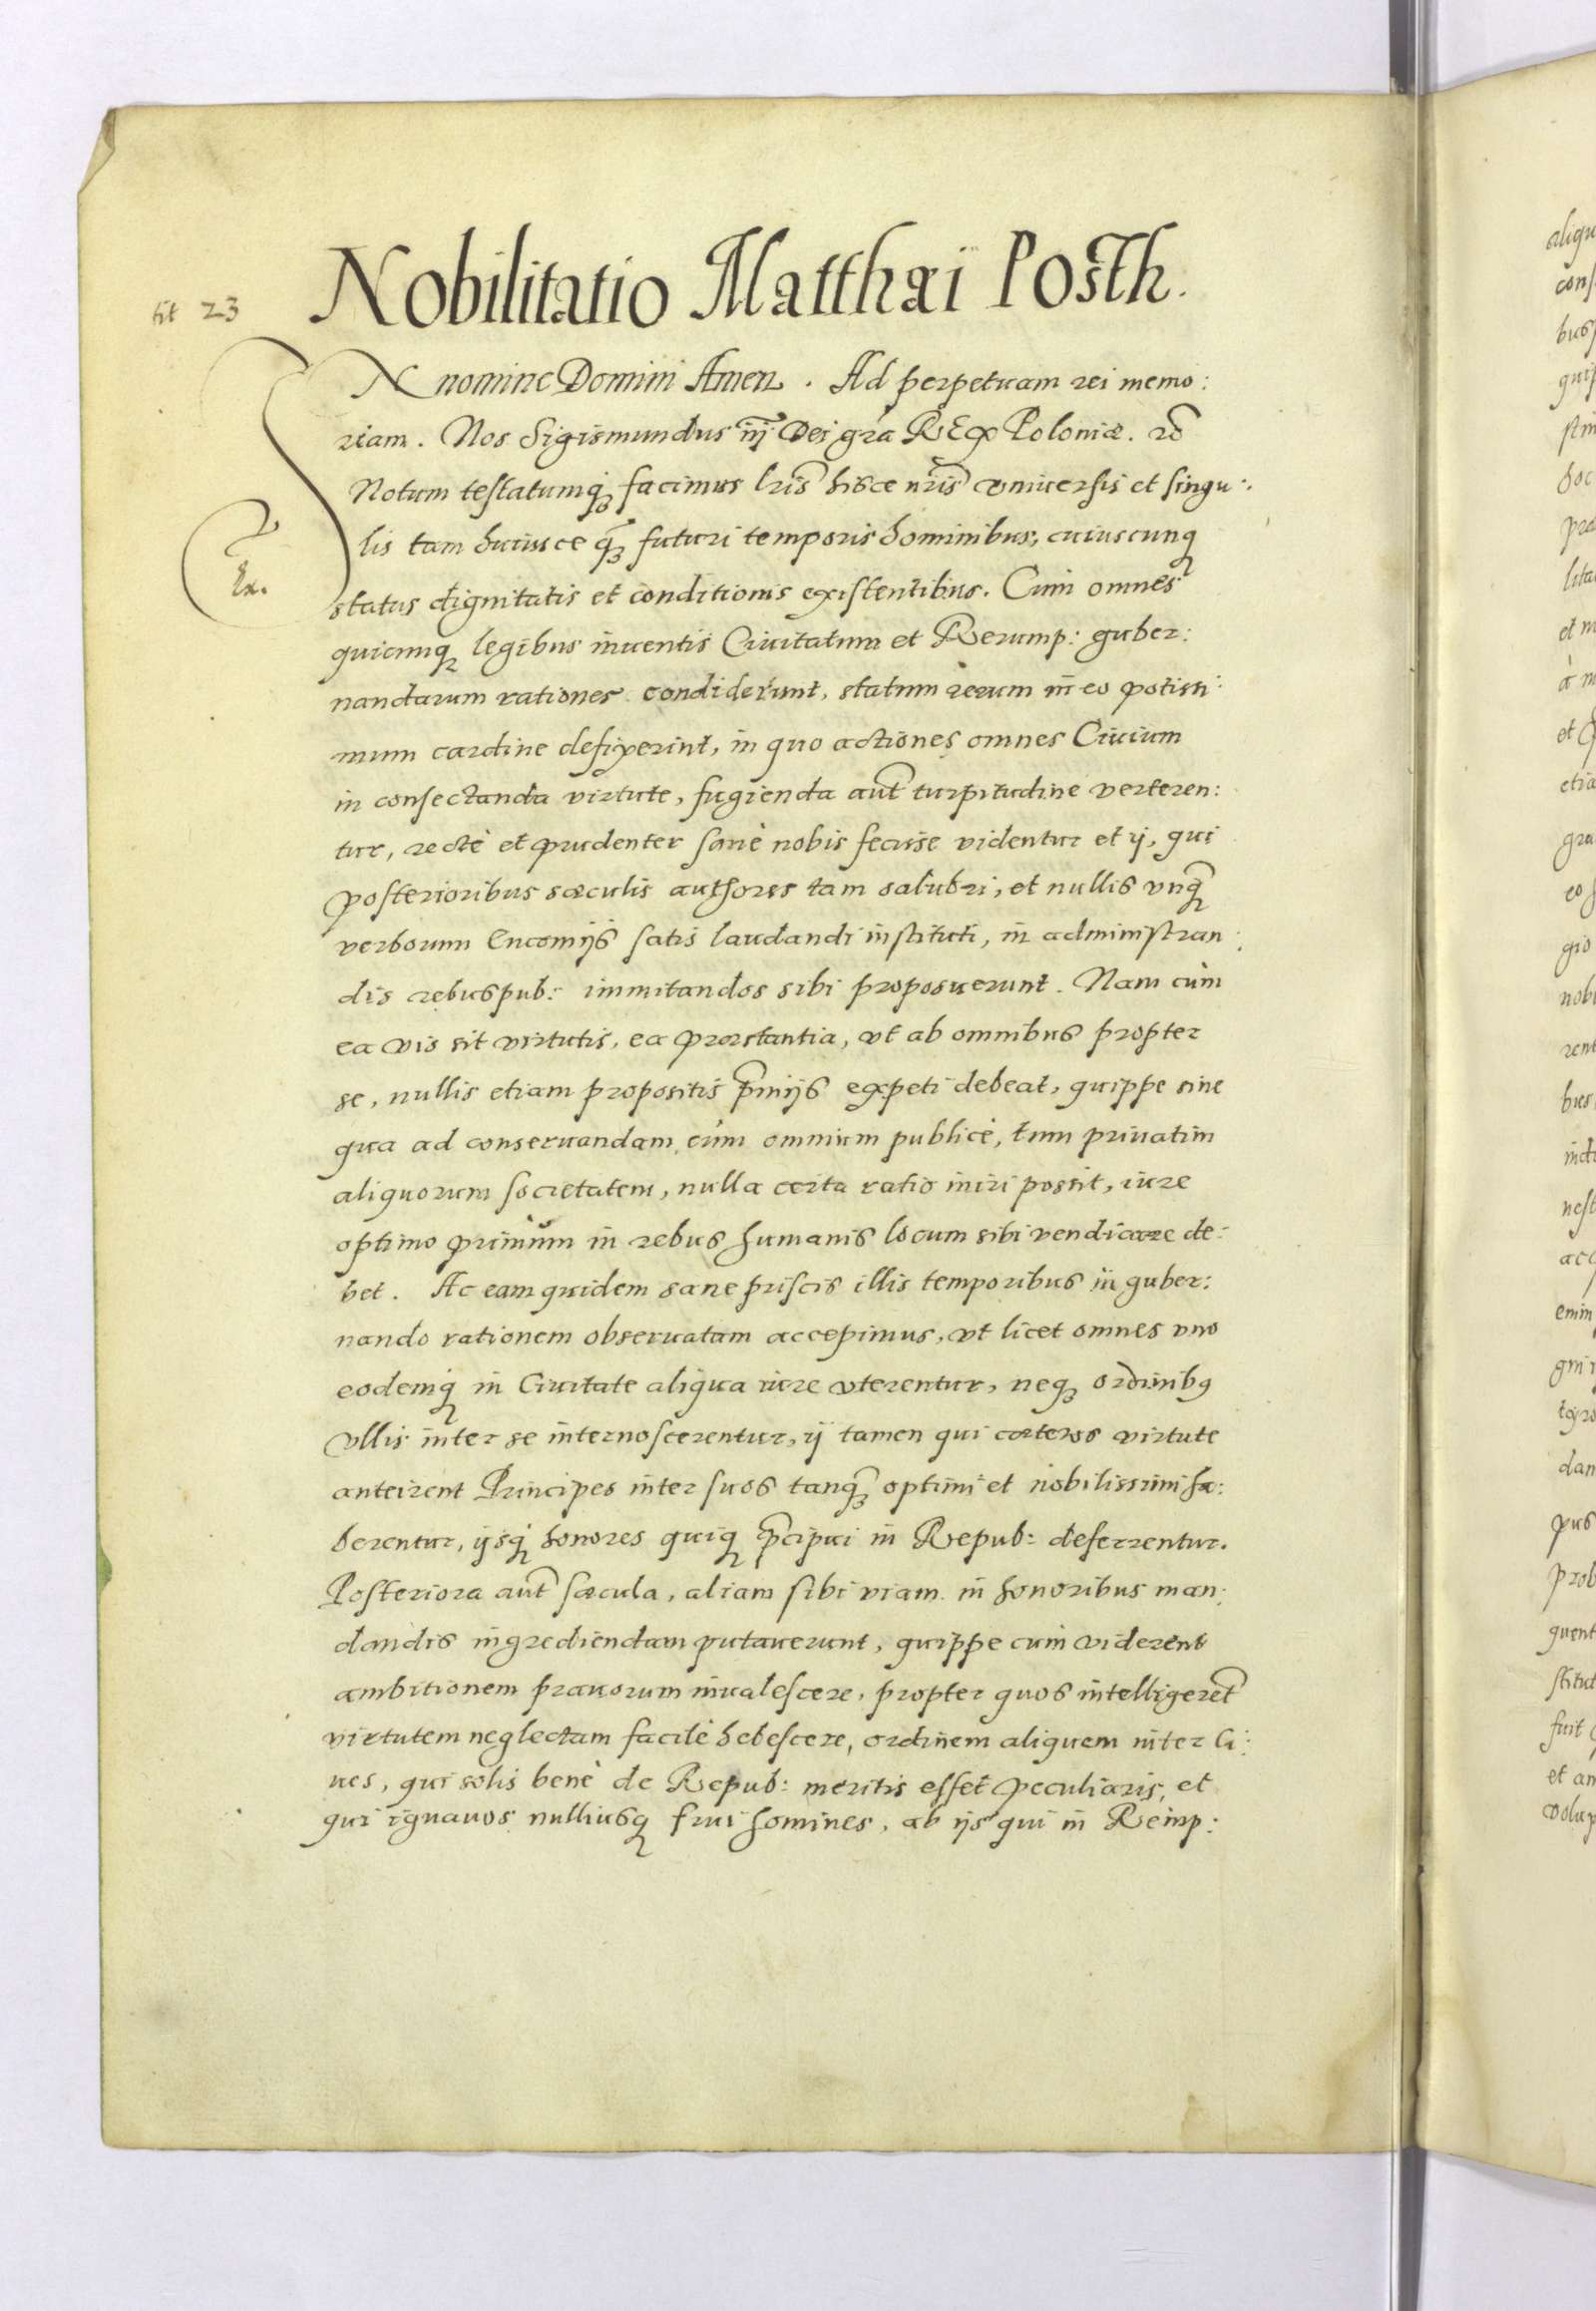 Nobilitatio Matthæi Posth.
tit 23
IN nomine Domini Amen. Ad perpetuam rei memo:
riam. Nos Sigismundus iij Dei gr̃a REX Poloniæ. &c̃
Notum testatumq; facimus lr̃is hisce nr̃is vniuersis et singu:
lis tam huiusce q̃ futuri temporis hominibus, cuiuscunq;
Ex.
status dignitatis et conditionis existentibus. Cum omnes
quicunq; legibus inuentis Ciuitatum et Rerump: guber:
nandarum rationes condiderunt, statum rerum in eo potissi:
mum cardine defixerint, in quo actiones omnes Ciuium
in consectanda virtute, fugienda aut̃ turpitudine verteren:
tur, rectè et prudenter sanè nobis fecisse videntur et ij, qui
posterioribus sæculis authores tam salubri, et nullis vnq̃
verborum Encomijs satis laudandi instituti, in administran:
dis rebuspub: immitandos sibi proposuerunt. Nam cùm
ea vis sit virtutis, ea præstantia, vt ab omnibus propter
se, nullis etiam propositis p̃mijs expeti debeat, quippe sine
qua ad conseruandam cùm omnium publicè, tum priuatim
aliquorum societatem, nulla certa ratio iniri possit, iure
optimo primum in rebus humanis locum sibi vendicare de:
bet. Ac eam quidem sane priscis illis temporibus in guber:
nando rationem obseruatam accepimus, vt licet omnes vno
eodemq; in Ciuitate aliqua iure vterentur, neq; ordinibq
vllis inter se internoscerentur, ij tamen qui cæteros virtute
anteirent Principes inter suos tanq̃ optimi et nobilissimi ha:
berentur, ijsq; honores quiq; p̃cipui in Repub: deferrentur.
Posteriora aut̃ sæcula, aliam sibi viam in honoribus man:
dandis ingrediendam putauerunt, quippe cum viderent
ambitionem prauorum inualescere, propter quos intelligeret̃
virtutem neglectam facilè hebescere, ordinem aliquem inter Ci:
ues, qui solis benè de Repub: meritis esset peculiaris, et
qui ignauos nulliusq; frui homines, ab ijs qui in Remp:
aliqu
conf
busq
hoc
lita
et
etia
gra
eo
gio
nobi
rent
bus
nest
acc
enim
dan
pus
prob
quent
stitut
fuit
et an
volup